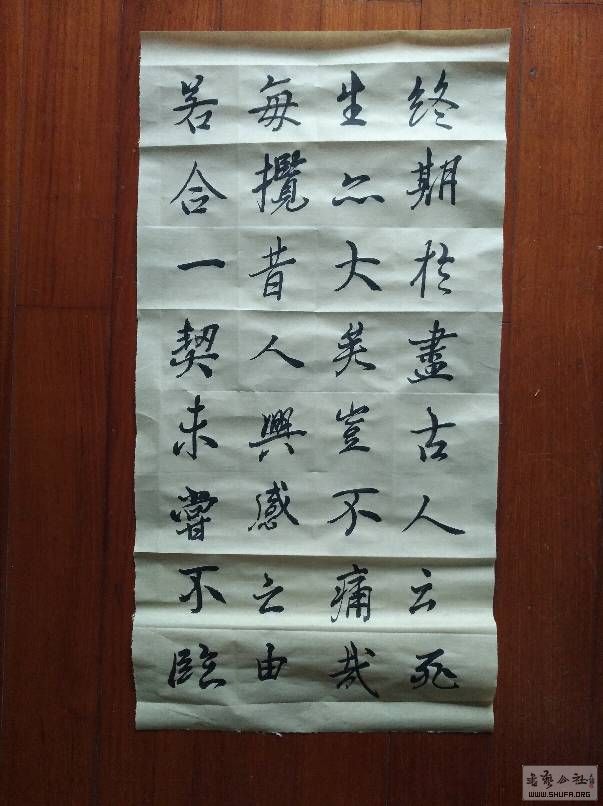 終期於盡古人云死
生亦大矣豈不痛哉
每攬昔人興感之由
若合一契未嘗不臨
书艺公社
WWW.SHUFA.ORG